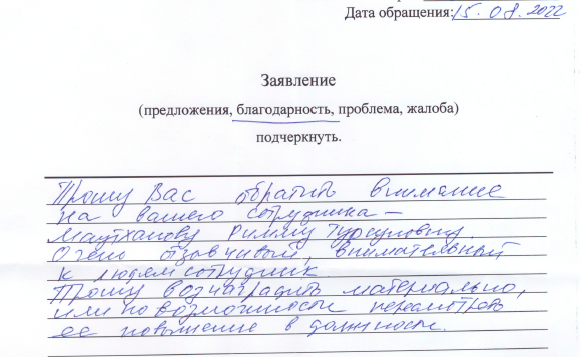 Дата обращения: 15.08.2022
Заявление
(предложения, благодарность, проблема, жалоба)
подчеркнуть.
Прошу Вас обратить внимание
на вашего сотрудника –
Римму Турсуновну.
Очень отзывчивый, внимательный
к людям сотрудник
Прошу вознаградить материально,
или по возможности пересмотреть
ее повышение в должности.